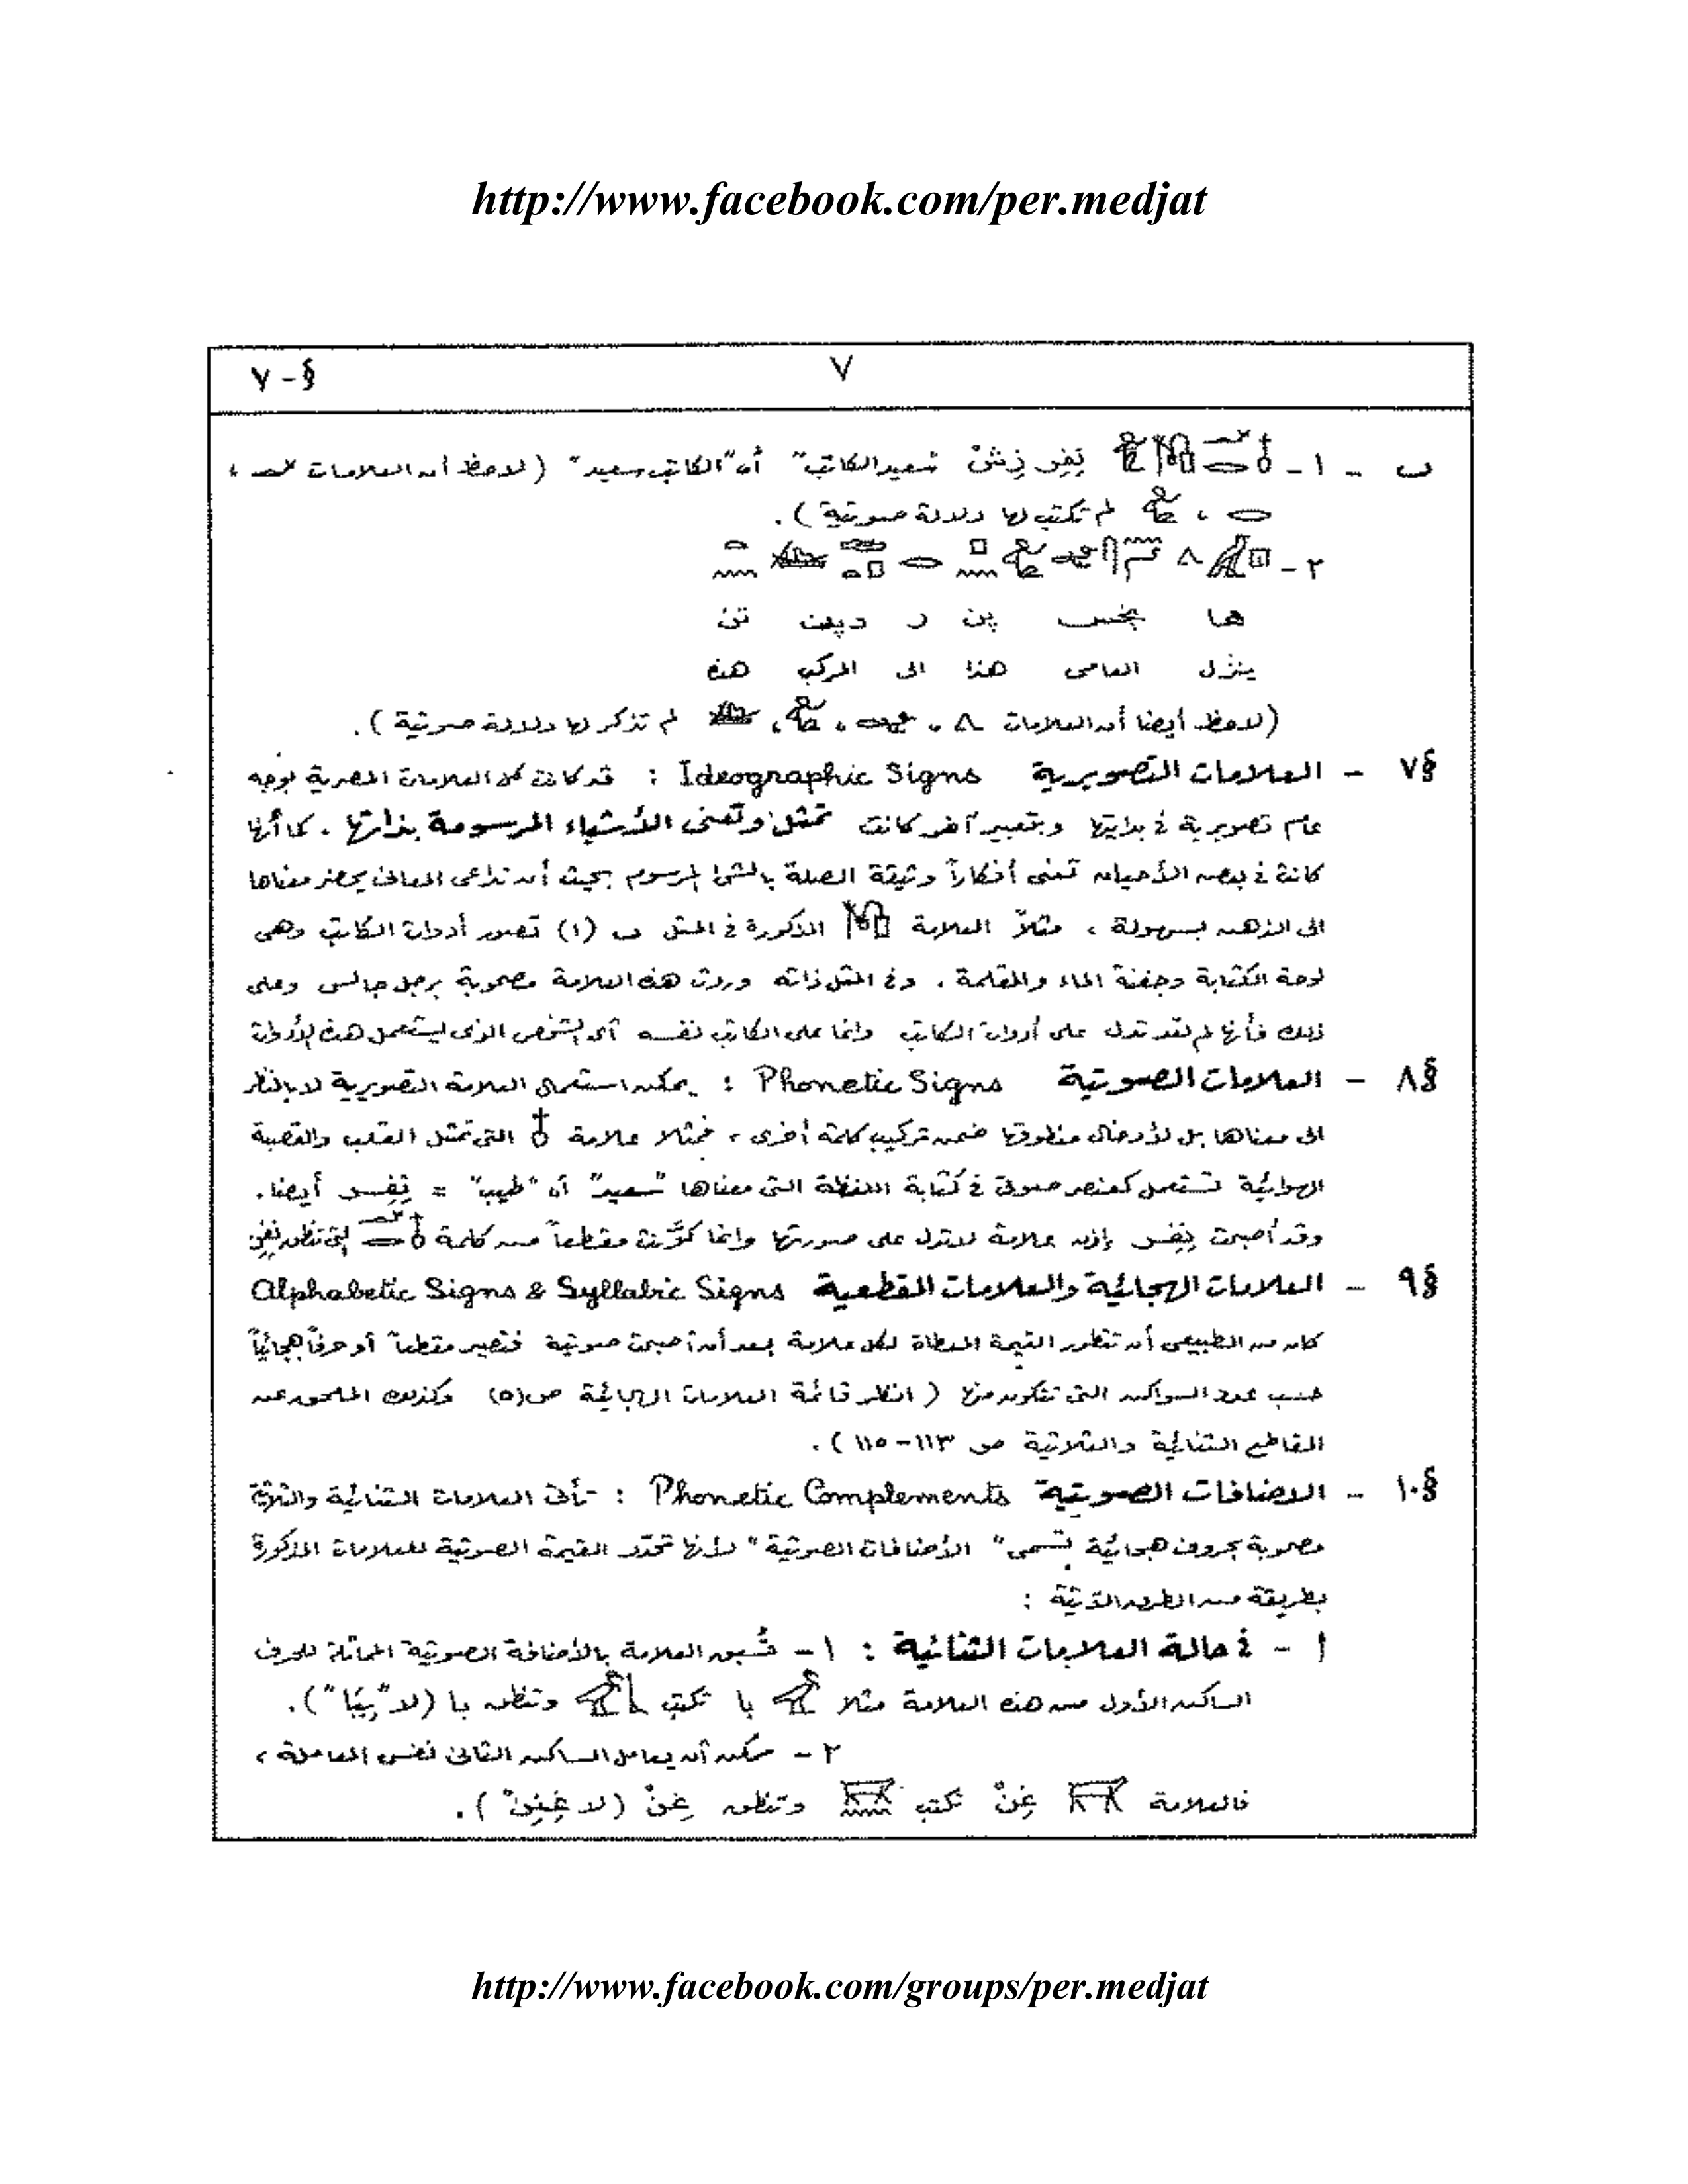 http://www.facebook.com/per.medjat
٧
§-٧
ب - ١ - نِفِر زِشْ "سعيد الكاتب" أى "الكاتب سعيد" (لاحظ أن العلامات ،
، لم تكتب لها دلالة صوتية).
٢ -
ها پن ر دپت تن
ينزل العاصى هذا الى المركب هذه
(لاحظ أيضا أن العلامات ، ، ، لم تذكر لها دلالة صوتية).
§٧ - العلامات التصويرية Ideographic Signs : قد كانت كل العلامات المصرية بوجه
عام تصويرية فى بدايتها وبتعبير آخر كانت تمثل وتعنى الأشياء المرسومة بذاتها . كما أنها
كانت فى بعض الأحيان تعنى أفكاراً وثيقة الصلة بالشئ المرسوم بحيث أن تداعى المعانى يحضر معناها
الى الذهن بسهولة ، مثلاً العلامة المذكورة فى المثل ب (١) تصور أدوات الكاتب وهى
لوحة الكتابة وجفنة الماء والمقلمة . وفى المثل ذاته وردت هذه العلامة مصحوبة برجل جالس وعلى
ذلك فأنها لم تعد تدل على أدوات الكاتب وانما على الكاتب نفسه أى الشخص الذى يستعمل هذه الأدوات
§٨ - العلامات الصوتية Phonetic Signs : يمكن استعمال العلامة التصويرية لا بالنظر
الى معناها بل لأدخال منطوقها ضمن تركيب كلمة أخرى ، فمثلا علامة التى تمثل القلب والقصبة
الهوائية تستعمل كعنصر صوتى فى كتابة اللفظة التى معناها "سعيد" أى "طيب" = نِفِر أيضا.
وقد أصبحت نِفِر إذن علامة لا تدل على صورتها وانما كوَّنت مقطعاً من كلمة التى تنطق نِفِر
§٩ - العلامات الهجائية والعلامات المقطعية Alphabetic Signs & Syllabic Signs
كان من الطبيعى أن تتطور القيمة المعطاة لكل علامة بعد أن أصبحت صوتية فتصير مقطعاً أو حرفاً هجائياً
حسب عدد السواكن التى تتكون منها ( انظر قائمة العلامات الهجائية ص(٥) وكذلك الملحق عن
المقاطع الثنائية والثلاثية ص ١١٣-١١٥ ).
§١٠ - الاضافات الصوتية Phonetic Complements : تأتى العلامات الثنائية والثلاثية
مصحوبة بحروف هجائية تسمى "الأضافات الصوتية" لأنها تحدّد القيمة الصوتية للعلامات المذكورة
بطريقة من الطرق الآتية :
أ - فى حالة العلامات الثنائية : ١ - تُسبق العلامة بالأضافة الصوتية المماثلة للحرف
الساكن الأول من هذه العلامة مثلا با تكتب وتنطق با (لا "بِبَا").
٢ - ممكن أن يعامل الساكن الثانى نفس المعاملة ،
فالعلامة غِنْ تكتب وتنطق غِنْ (لا غِنِنْ").
http://www.facebook.com/groups/per.medjat